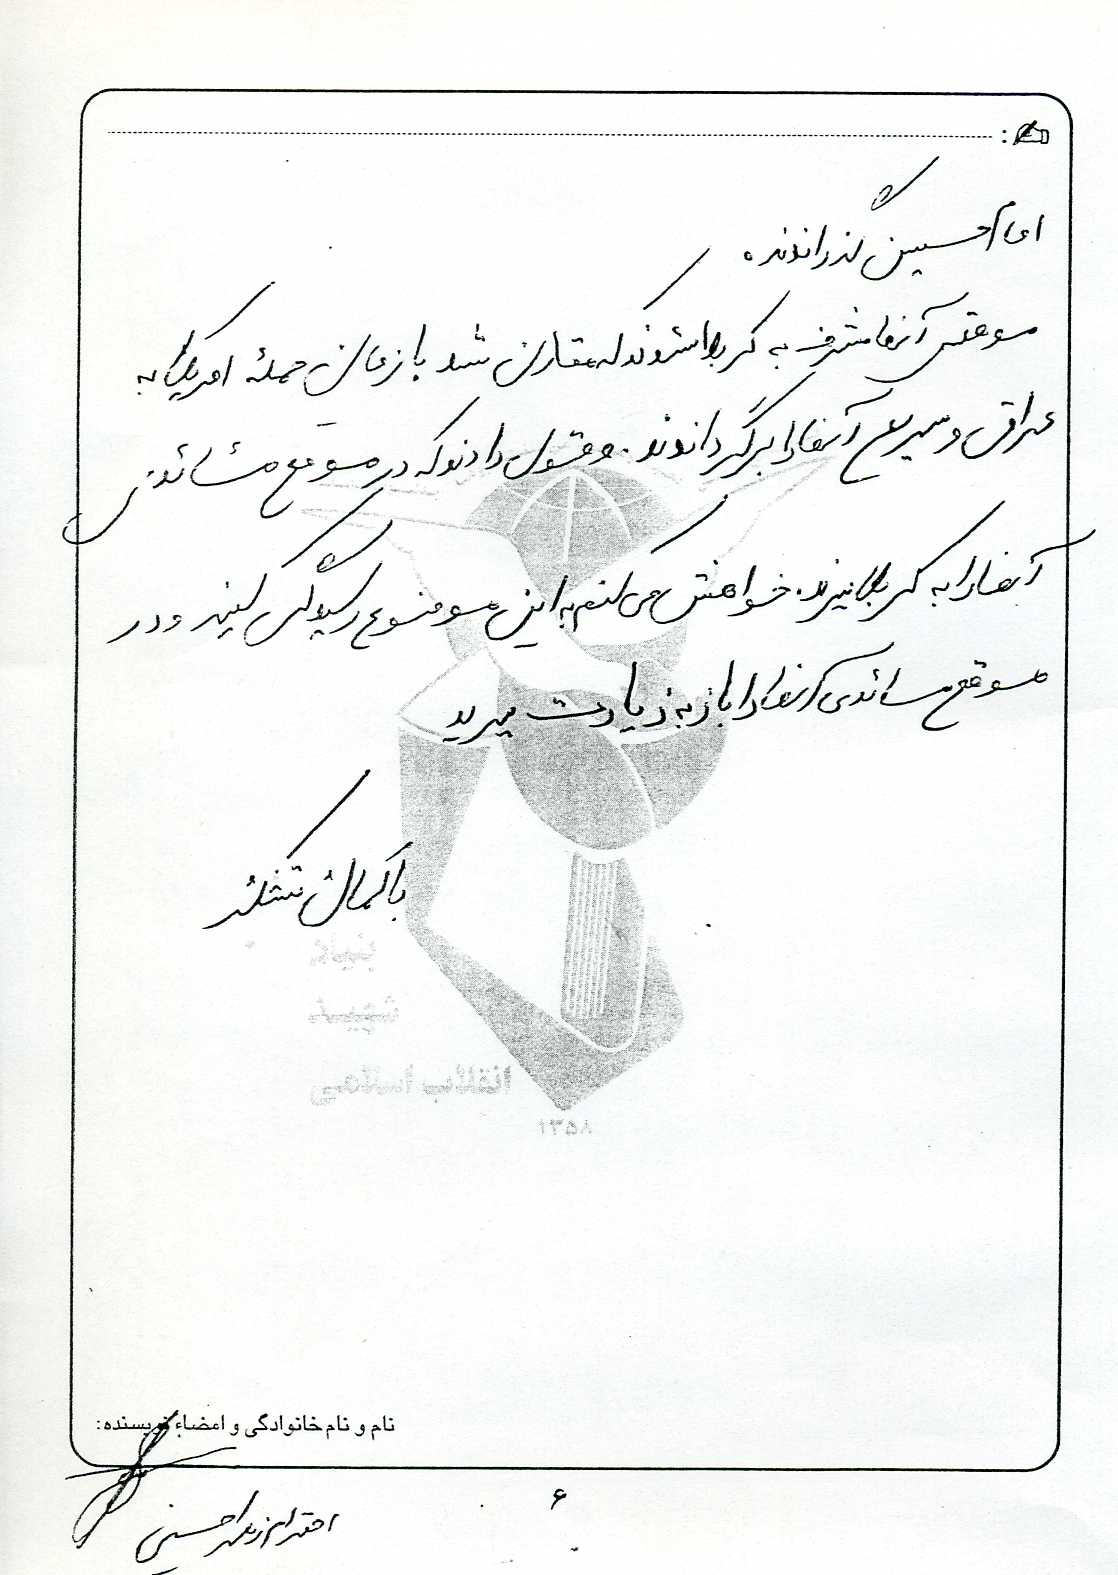 امام حسین گذراندند.
موقعی آنها مشرف به کربلا شدند که مقارن شد با زمان حملهٔ امریکا به
عراق و سریع آنها را برگرداندند. و قول دادند که در موقع مناسب
آنها را به کربلا ببرند. خواهش می‌کنم به این موضوع رسیدگی کنید و در
موقع مساعدی آنها را باز به زیارت ببرید
با کمال تشکر
بنیاد
شهید
انقلاب اسلامی
۱۳۵۸
نام و نام خانوادگی و امضاء نویسنده:
حسینی
۶